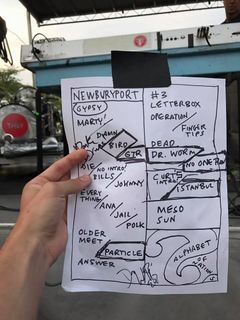 NEWBURYPORT
GYPSY
MARTY!
DAMN
BIRD
GTR
DIE
NO INTRO!
PILLS
JOHNNY
EVERY
THING
ANA
JAIL
POLK
OLDER
MEET
PARTICLE
ANSWER
#3
LETTERBOX
OPERATION
FINGER
TIPS
DEAD
DR. WORM
NO ONE RO
CURT'S
INTRO
ISTANBUL
MESO
SUN
ALPHABET
OF NATIONS